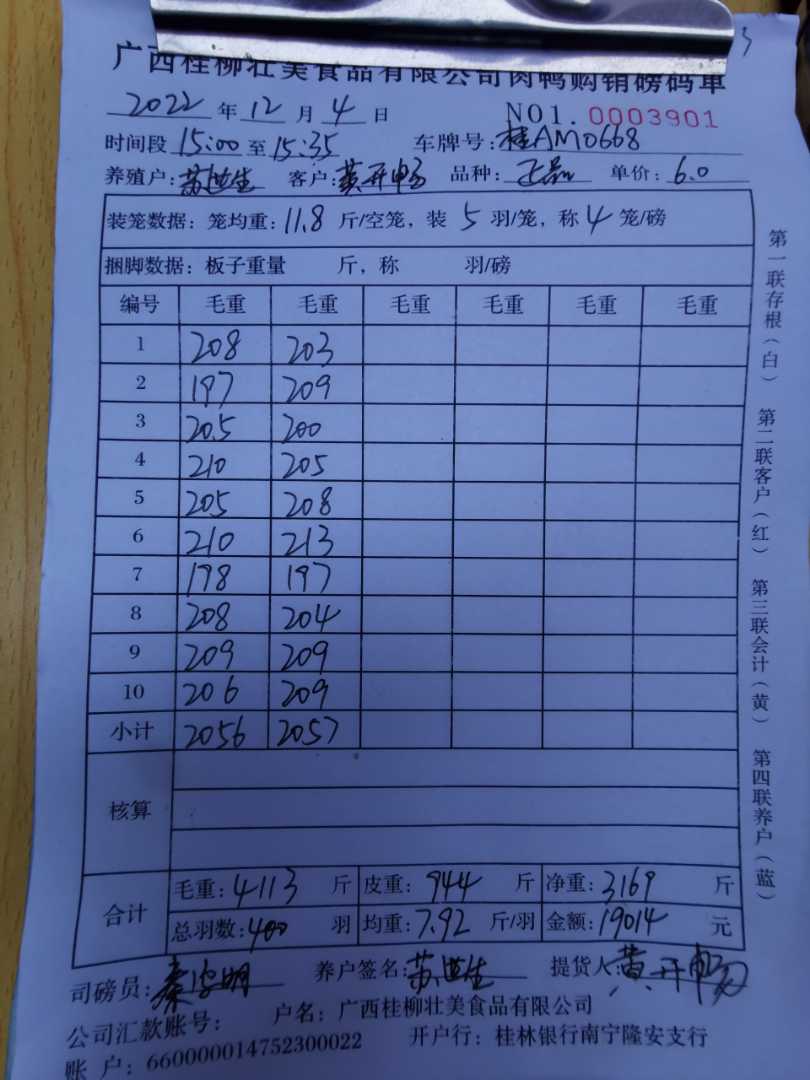 广西桂柳壮美食品有限公司肉鸭购销磅码单
2022 年 12 月 4 日 NO1. 0003901
时间段 15:00 至 15:35 车牌号: 桂AM0668
养殖户: 苏世生 客户: 黄开畅 品种: 正品 单价: 6.0
装笼数据: 笼均重: 11.8 斤/空笼, 装 5 羽/笼, 称 4 笼/磅
捆脚数据: 板子重量 斤, 称 羽/磅
编号 毛重 毛重 毛重 毛重 毛重 毛重
1 208 203
2 197 209
3 205 200
4 210 205
5 205 208
6 210 213
7 198 197
8 208 204
9 209 209
10 206 209
小计 2056 2057
核算
合计
毛重: 4113 斤 皮重: 944 斤 净重: 3169 斤
总羽数: 400 羽 均重: 7.92 斤/羽 金额: 19014 元
司磅员: 秦 明 养户签名: 苏世生 提货人: 黄开畅
公司汇款账号: 户名: 广西桂柳壮美食品有限公司
账 户: 660000014752300022 开户行: 桂林银行南宁隆安支行
第一联存根(白) 第二联客户(红) 第三联会计(黄) 第四联养户(蓝)